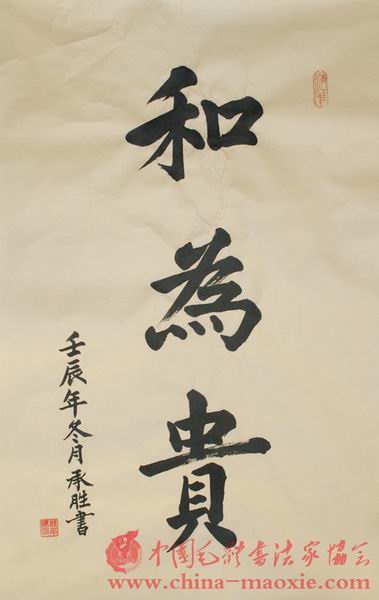 和為貴
壬辰年冬月承胜書
中国毛體书法家協会
www.china-maoxie.com